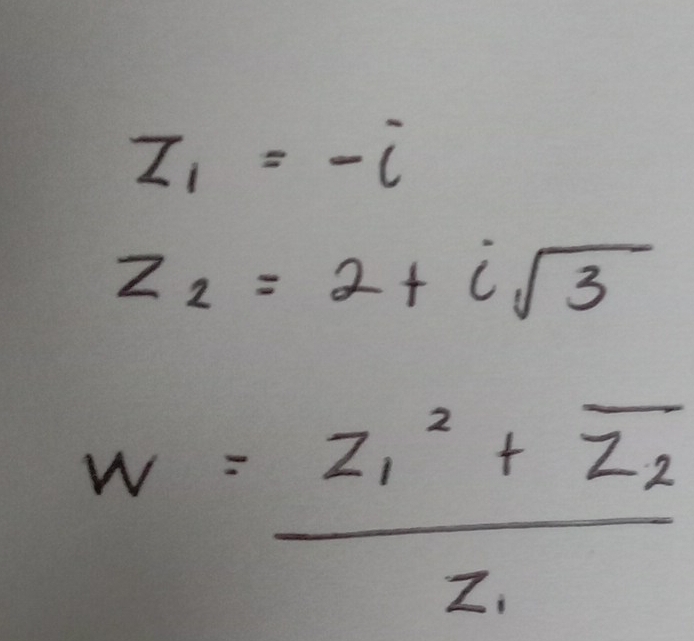 z₁ = -i
z₂ = 2 + i√3
w = (z₁² + z̅₂) / z₁